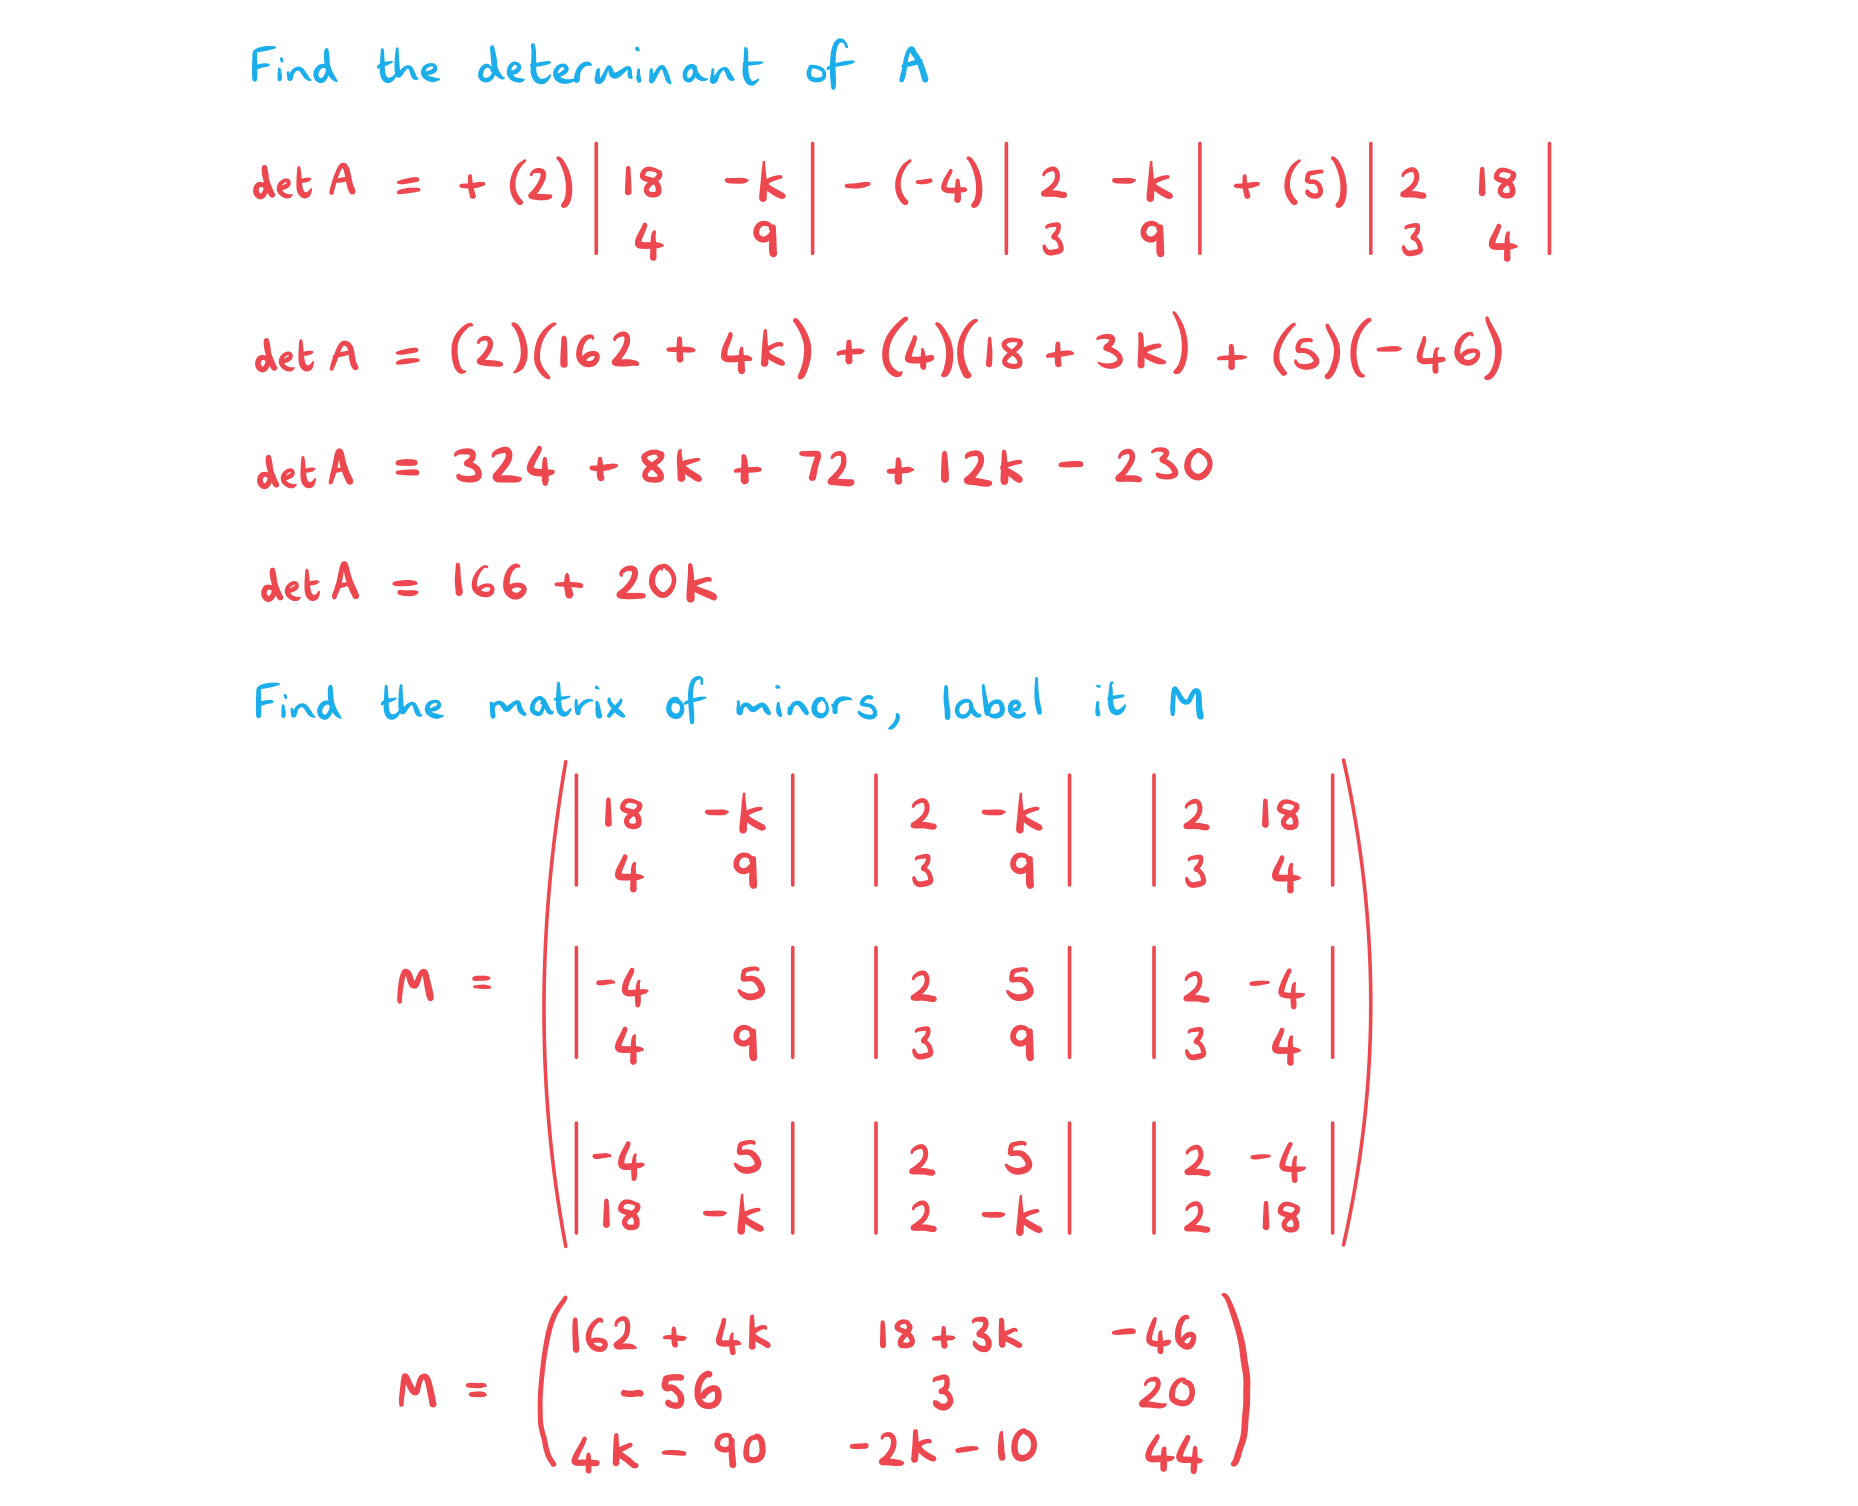 Find the determinant of A
det A = + (2) | 18 -k | - (-4) | 2 -k | + (5) | 2 18 |
4 9 3 9 3 4
det A = (2)(162 + 4k) + (4)(18 + 3k) + (5)(-46)
det A = 324 + 8k + 72 + 12k - 230
det A = 166 + 20k
Find the matrix of minors, label it M
| 18 -k | | 2 -k | | 2 18 |
| 4 9 | | 3 9 | | 3 4 |
M = | -4 5 | | 2 5 | | 2 -4 |
| 4 9 | | 3 9 | | 3 4 |
| -4 5 | | 2 5 | | 2 -4 |
| 18 -k | | 2 -k | | 2 18 |
162 + 4k 18 + 3k -46
M = ( -56 3 20 )
4k - 90 -2k - 10 44